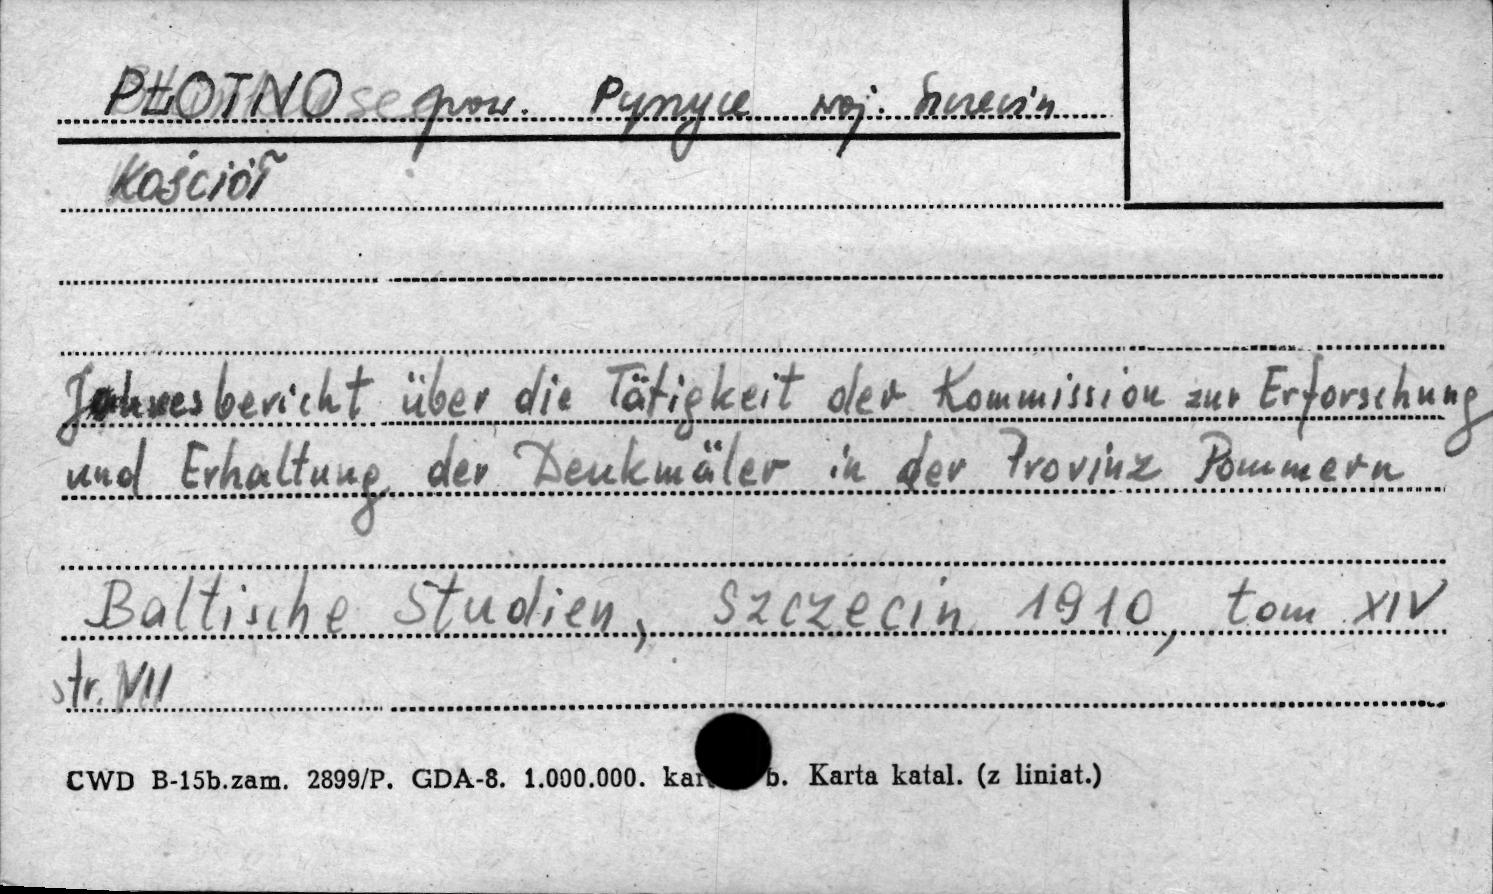 PŁOTNO pow. Pyrzyce woj. Szczecin
Kościół
Jahresbericht über die Tätigkeit der Kommission zur Erforschung
und Erhaltung der Denkmäler in der Provinz Pommern
Baltische Studien, Szczecin 1910, tom XIV
str. VII
CWD B-15b.zam. 2899/P. GDA-8. 1.000.000. b. Karta katal. (z liniat.)